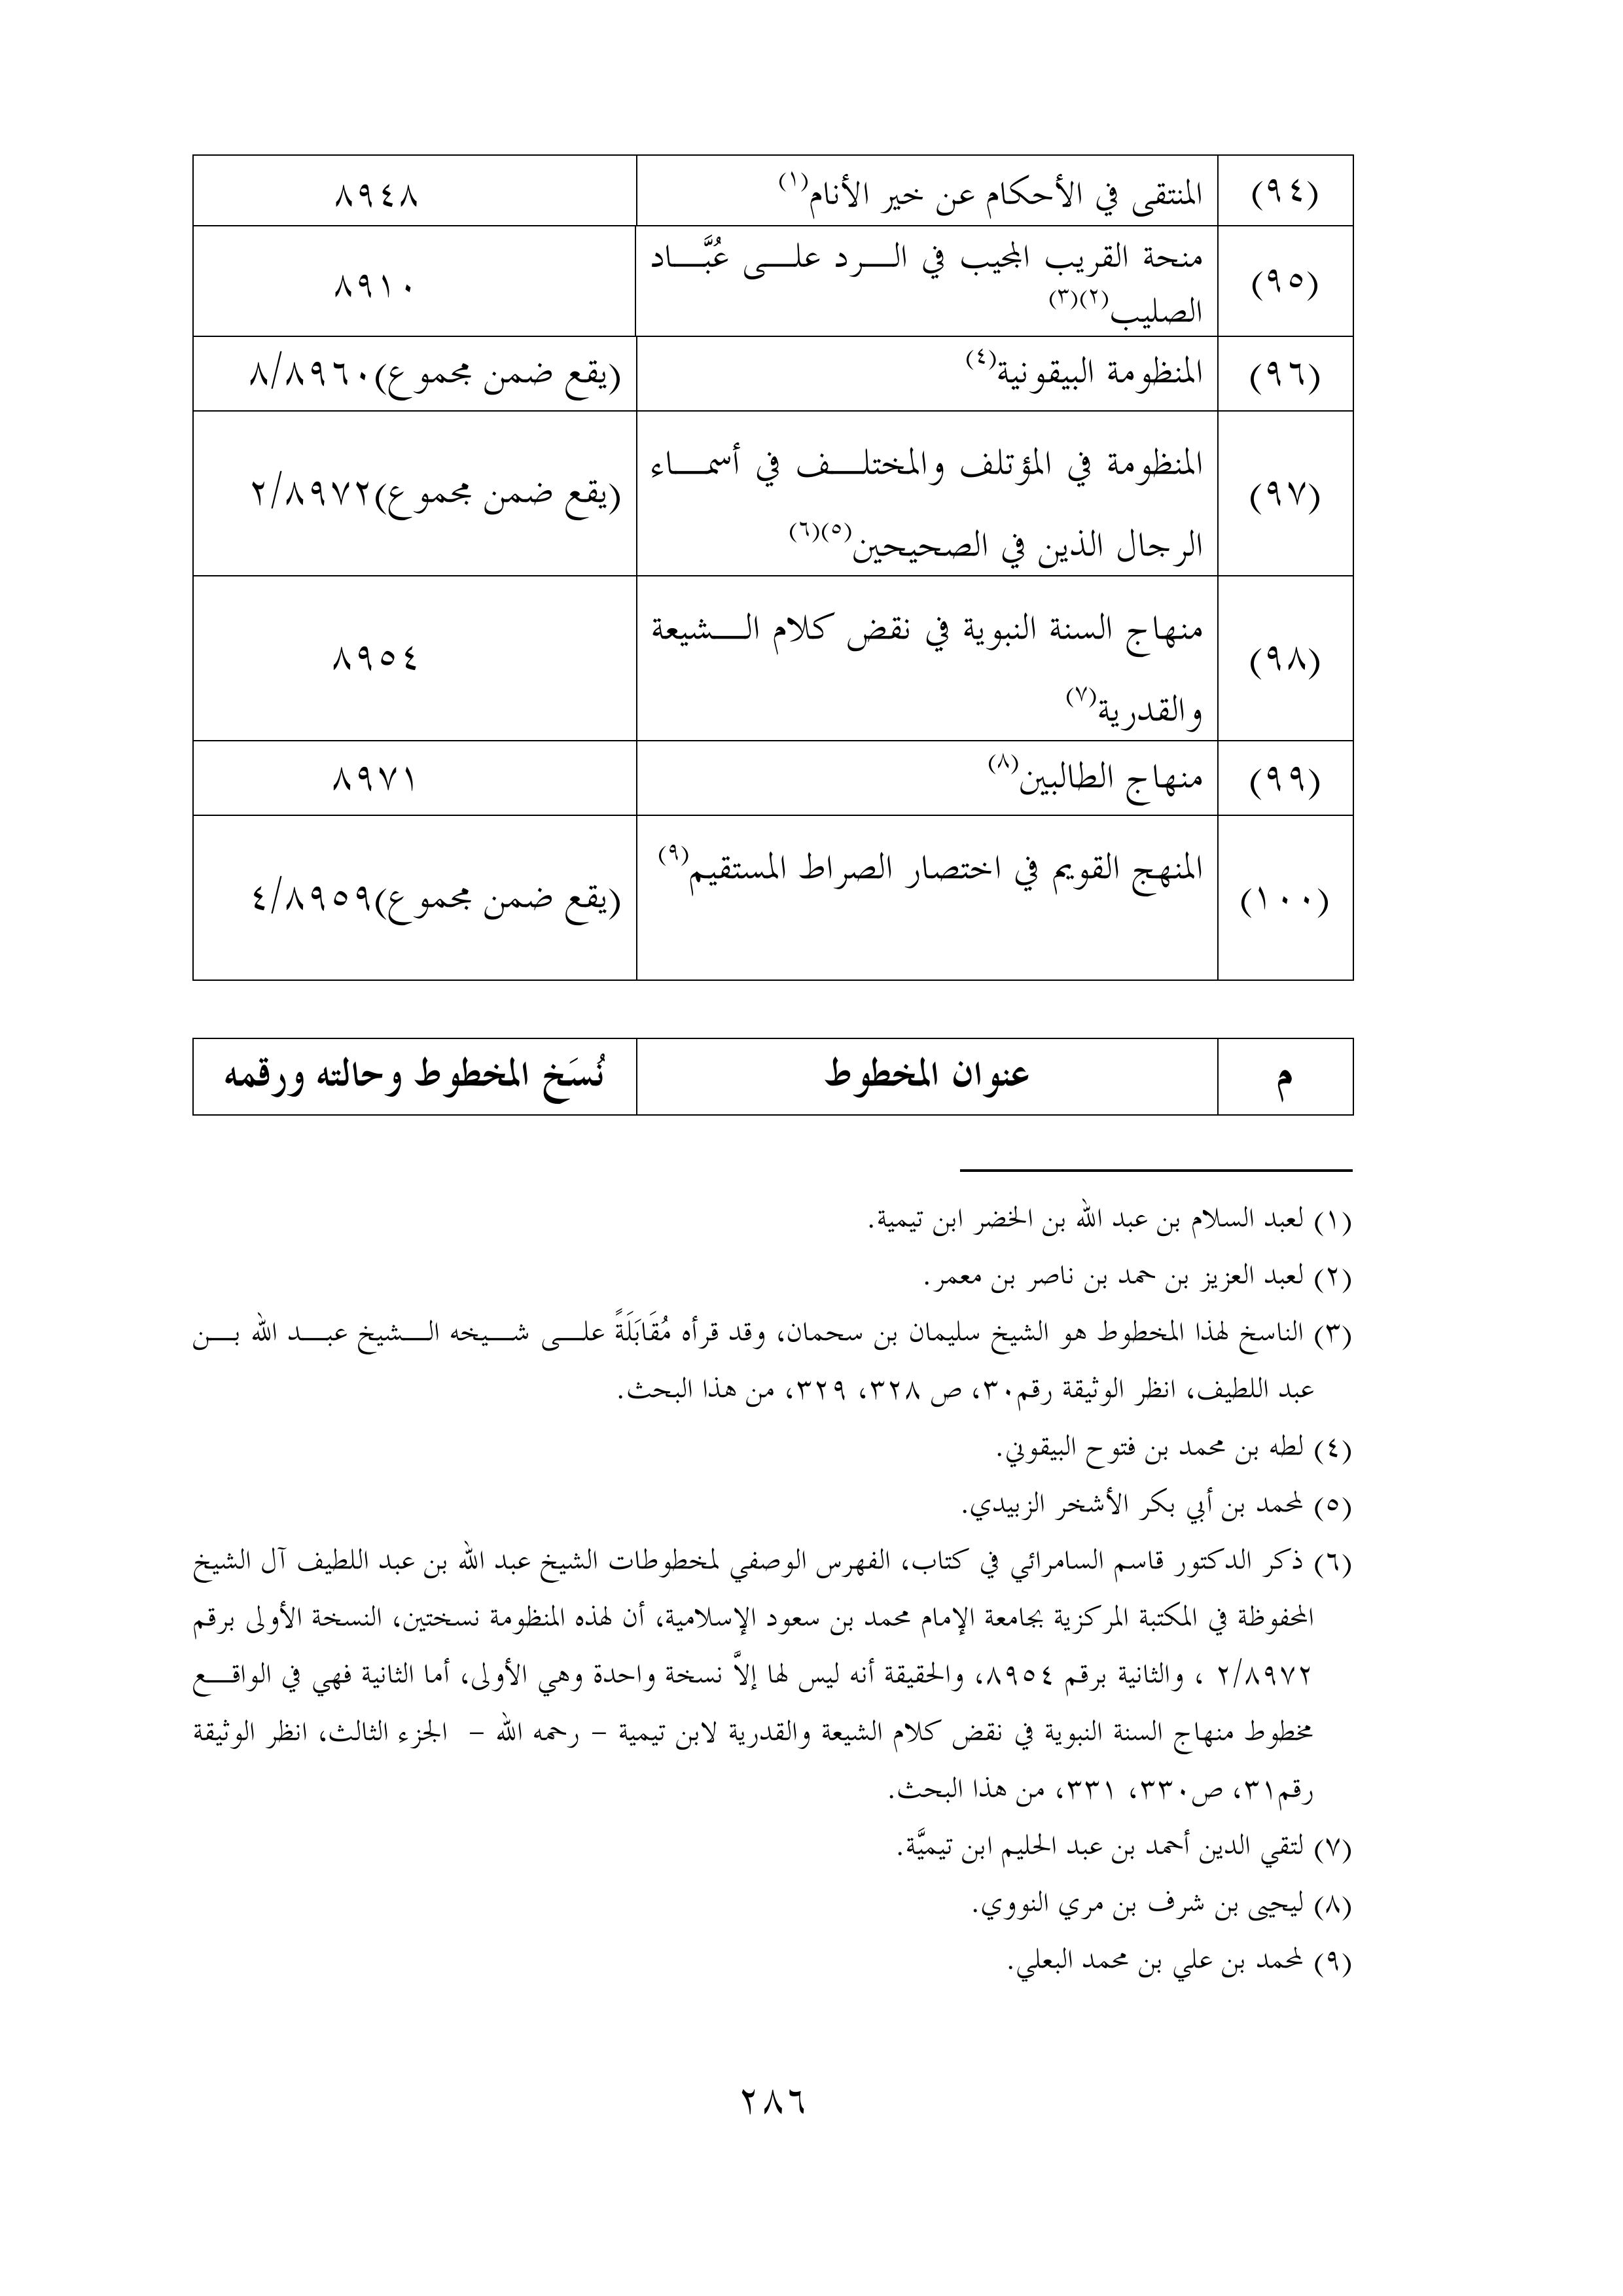 (٩٤) المنتقى في الأحكام عن خير الأنام(١) ٨٩٤٨
(٩٥) منحة القريب المجيب في الـرد علـى عُبَّـاد
الصليب(٢)(٣) ٨٩١٠
(٩٦) المنظومة البيقونية(٤) (يقع ضمن مجموع)٨/٨٩٦٠
(٩٧) المنظومة في المؤتلف والمختلـف في أسمـاء
الرجال الذين في الصحيحين(٥)(٦) (يقع ضمن مجموع)٢/٨٩٧٢
(٩٨) منهاج السنة النبوية في نقض كلام الـشيعة
والقدرية(٧) ٨٩٥٤
(٩٩) منهاج الطالبين(٨) ٨٩٧١
(١٠٠) المنهج القويم في اختصار الصراط المستقيم(٩) (يقع ضمن مجموع)٤/٨٩٥٩
م عنوان المخطوط نُسَخ المخطوط وحالته ورقمه
(١) لعبد السلام بن عبد الله بن الخضر ابن تيمية.
(٢) لعبد العزيز بن حمد بن ناصر بن معمر.
(٣) الناسخ لهذا المخطوط هو الشيخ سليمان بن سحمان، وقد قرأه مُقَابَلَةً علـى شـيخه الـشيخ عبـد الله بـن
عبد اللطيف، انظر الوثيقة رقم٣٠، ص ٣٢٨، ٣٢٩، من هذا البحث.
(٤) لطه بن محمد بن فتوح البيقوني.
(٥) لمحمد بن أبي بكر الأشخر الزبيدي.
(٦) ذكر الدكتور قاسم السامرائي في كتاب، الفهرس الوصفي لمخطوطات الشيخ عبد الله بن عبد اللطيف آل الشيخ
المحفوظة في المكتبة المركزية بجامعة الإمام محمد بن سعود الإسلامية، أن لهذه المنظومة نسختين، النسخة الأولى برقم
٢/٨٩٧٢ ، والثانية برقم ٨٩٥٤، والحقيقة أنه ليس لها إلاَّ نسخة واحدة وهي الأولى، أما الثانية فهي في الواقـع
مخطوط منهاج السنة النبوية في نقض كلام الشيعة والقدرية لابن تيمية – رحمه الله – الجزء الثالث، انظر الوثيقة
رقم٣١، ص٣٣٠، ٣٣١، من هذا البحث.
(٧) لتقي الدين أحمد بن عبد الحليم ابن تيميَّة.
(٨) ليحيى بن شرف بن مري النووي.
(٩) لمحمد بن علي بن محمد البعلي.
٢٨٦